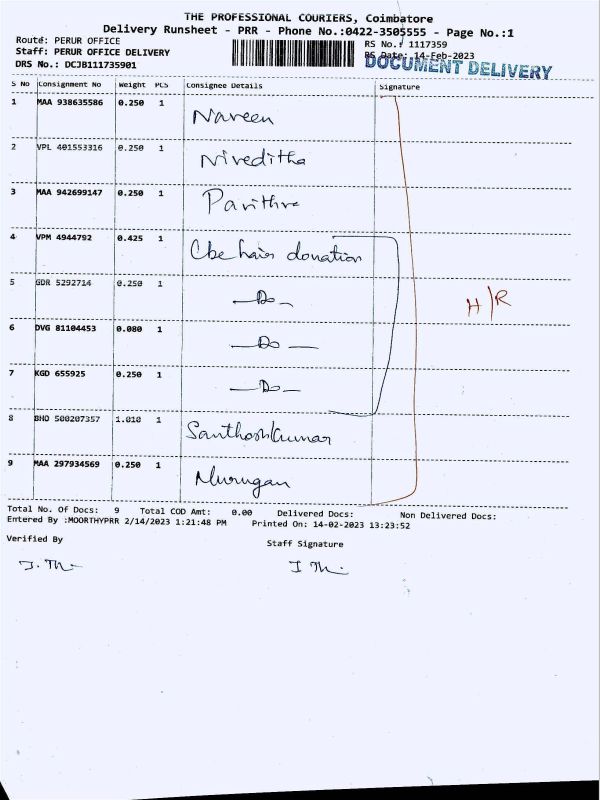 THE PROFESSIONAL COURIERS, Coimbatore
Delivery Runsheet - PRR - Phone No.:0422-3505555 - Page No.:1
Route: PERUR OFFICE
RS No.: 1117359
Staff: PERUR OFFICE DELIVERY
RS Date: 14-Feb-2023
DRS No.: DCJB111735901
DOCUMENT DELIVERY
S No Consignment No Weight PCS Consignee Details Signature
1 MAA 938635586 0.250 1 Naveen
2 VPL 401553316 0.250 1 Niveditha
3 MAA 942699147 0.250 1 Pavithra
4 VPM 4944792 0.425 1 Cbe hair donation
5 GDR 5292714 0.250 1 -Do-
H/R
6 DVG 81104453 0.080 1 -Do-
7 KGD 655925 0.250 1 -Do-
8 BHO 500207357 1.010 1 Santhoshkumar
9 MAA 297934569 0.250 1 Murugan
Total No. Of Docs: 9 Total COD Amt: 0.00 Delivered Docs: Non Delivered Docs:
Entered By :MOORTHYPRR 2/14/2023 1:21:48 PM Printed On: 14-02-2023 13:23:52
Verified By
Staff Signature